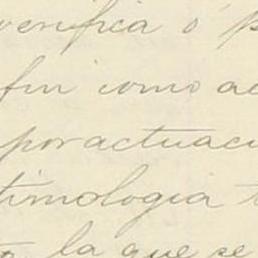 verifica ó p
fin como ac
por actuaci
timologia t
la que se